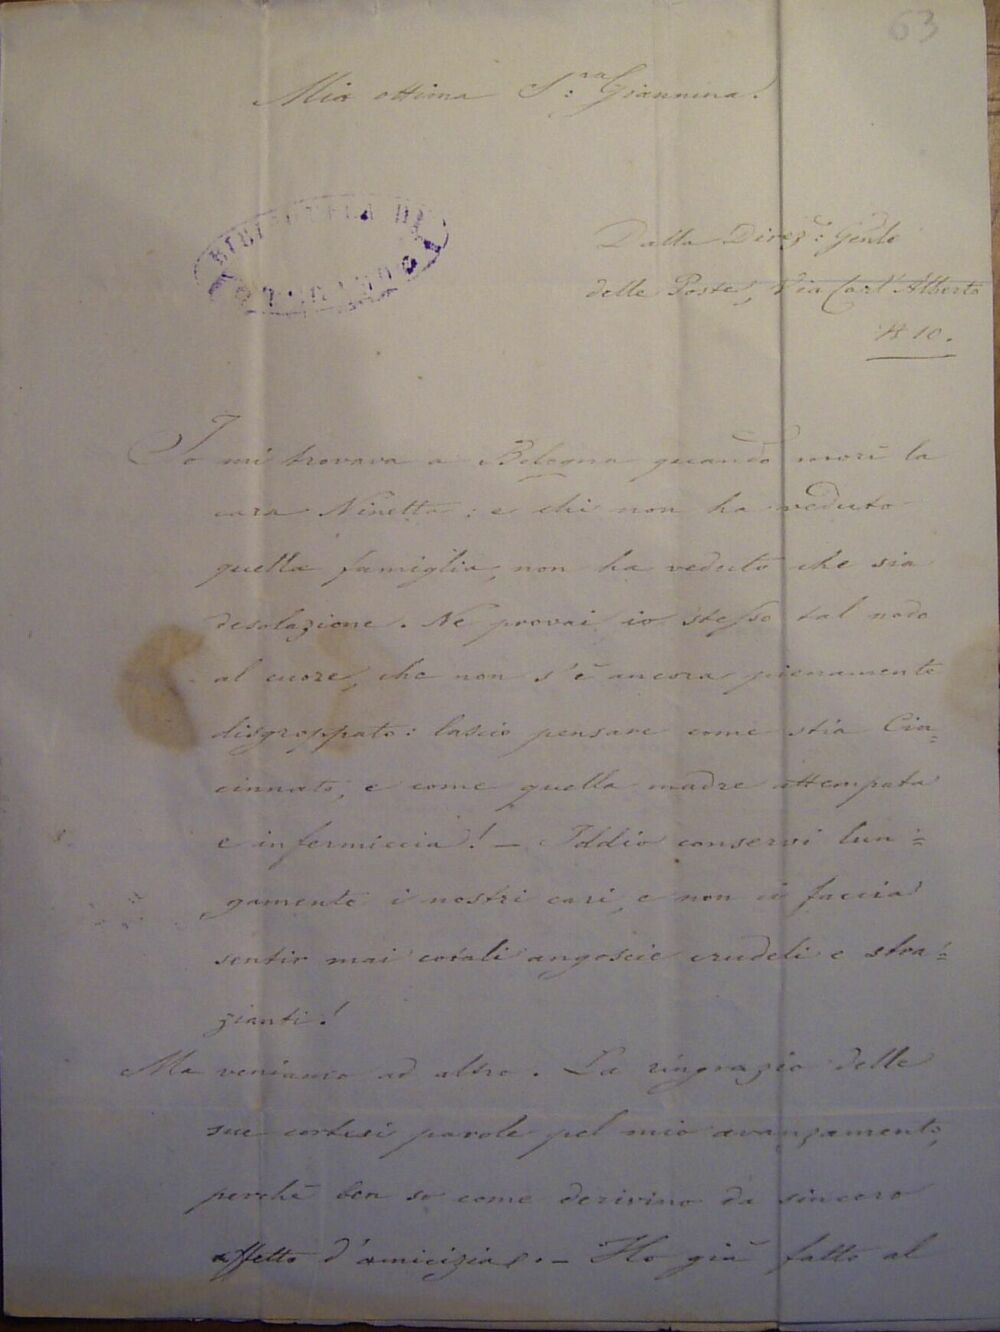 63
Mia ottima S:ra Giannina.
BIBLIOTECA DI
Dalla Direz.e Genle
delle Poste, Via Carl'Alberto
N 10.
Io mi trovava a Bologna quando morì la
cara Ninetta: e chi non ha veduto
quella famiglia, non ha veduto che sia
desolazione. Ne provai io stesso tal nodo
al cuore, che non s'è ancora pienamente
disgroppato: lascio pensare come stia Cin=
cinnato, e come quella madre attempata
e infermiccia! - Iddio conservi lun=
gamente i nostri cari, e non ci faccia
sentir mai cotali angoscie crudeli e stra=
zianti!
Ma veniamo ad altro. La ringrazio delle
sue cortesi parole pel mio avanzamento,
perchè ben so come derivino da sincero
affetto d'amicizia. - Ho già fatto al